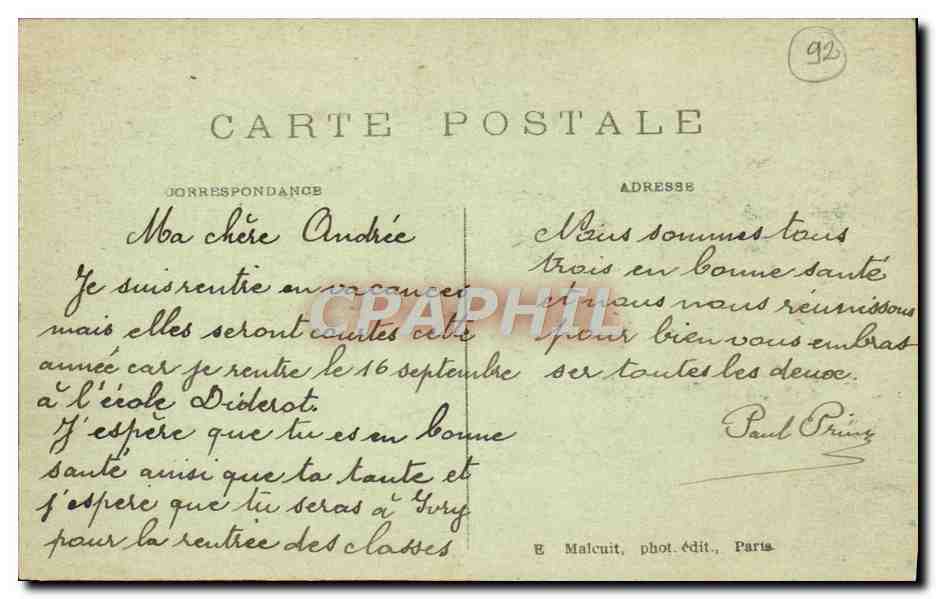 92
CARTE POSTALE
CORRESPONDANCE
Ma chère Andrée
Je suis rentré en vacances
mais elles seront courtes cette
année car je rentre le 16 septembre
à l'école Diderot.
J'espère que tu es en bonne
santé ainsi que ta tante et
j'espere que tu seras à Ivry
pour la rentrée des classes
ADRESSE
Nous sommes tous
trois en bonne santé
et nous nous réunissons
pour bien vous embras
ser toutes les deux.
Paul
E Malcuit, phot. édit., Paris
CPAPHIL